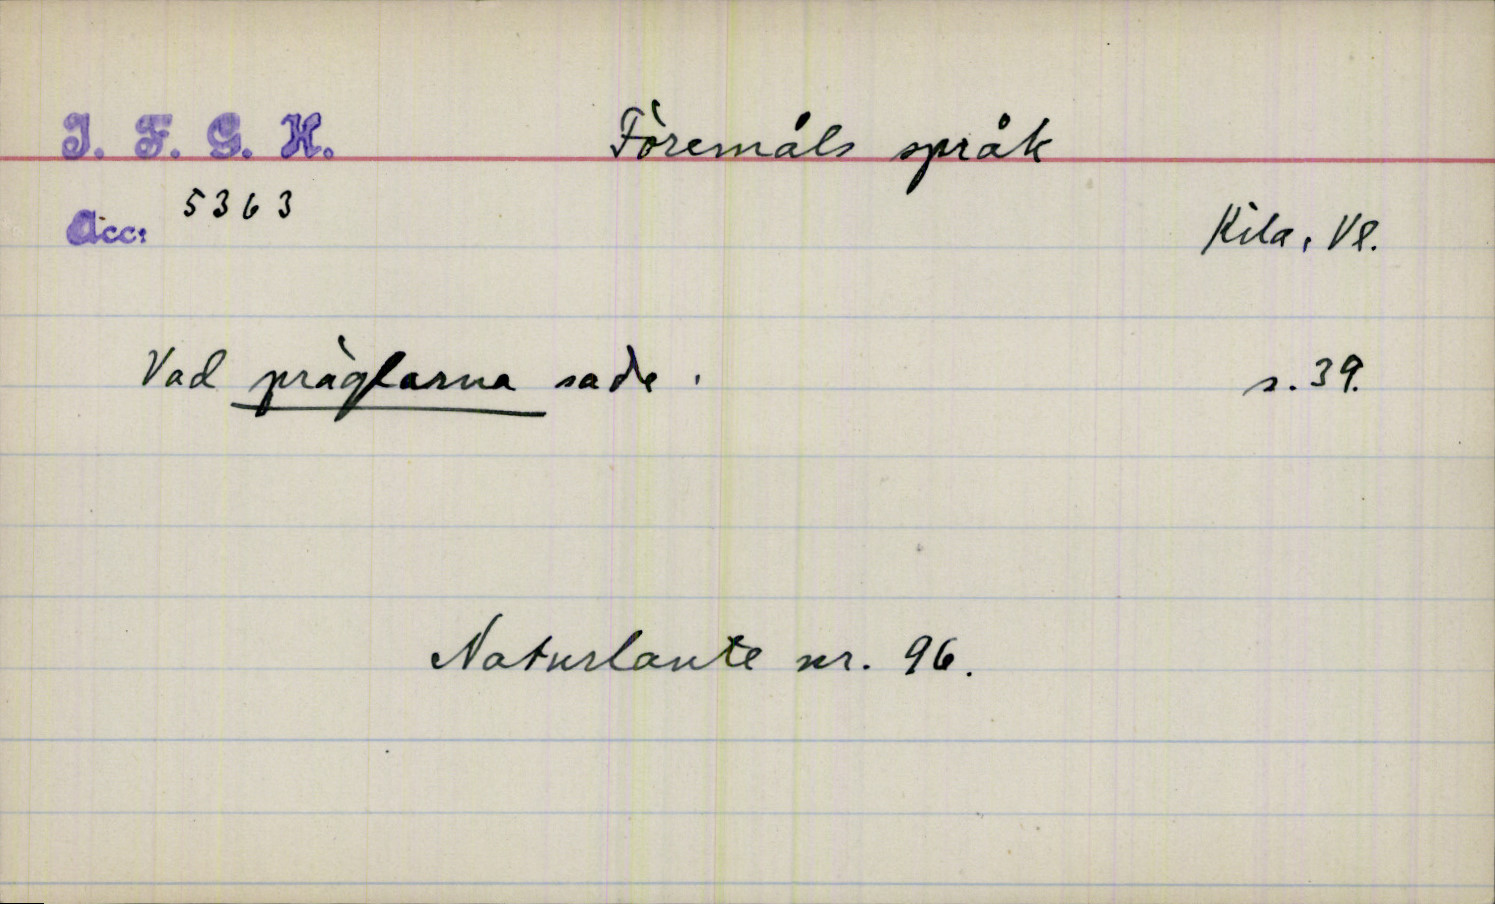 I. F. G. H. Föremåls språk
5363
Acc: Kila, Vl.
Vad präglarna sade. s. 39.
Naturlaute nr. 96.